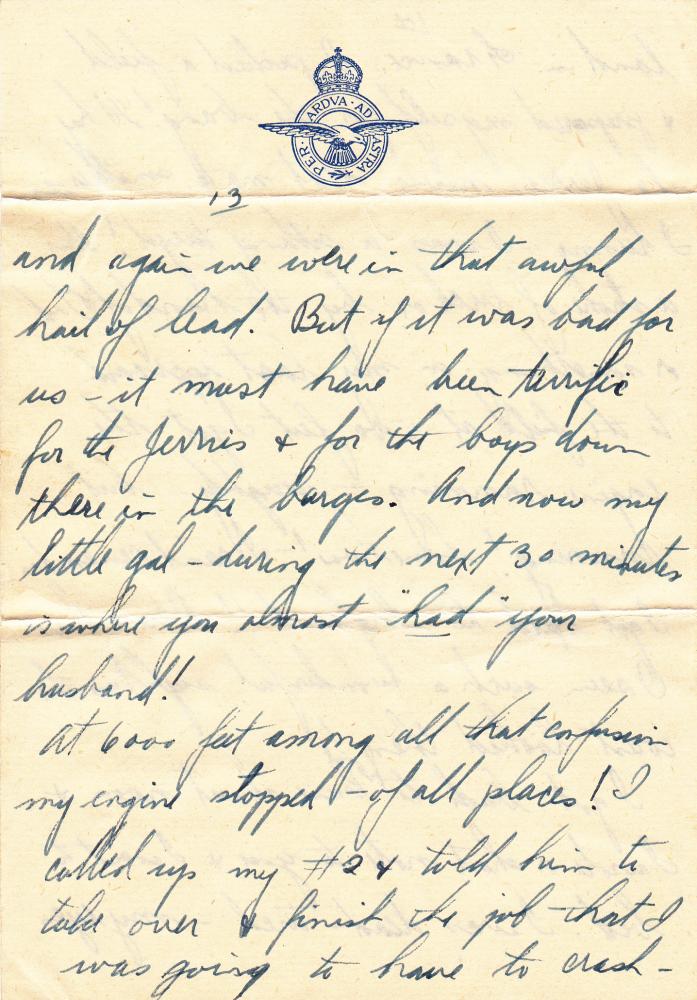 PER · ARDVA · AD ASTRA
13
and again we were in that awful
hail of lead. But if it was bad for
us - it must have been terrific
for the Jerries & for the boys down
there in the barges. And now my
little gal - during the next 30 minutes
is where you almost "had" your
husband!
At 6000 feet among all that confusion
my engine stopped - of all places! I
called up my #2 & told him to
take over & finish the job - that I
was going to have to crash-